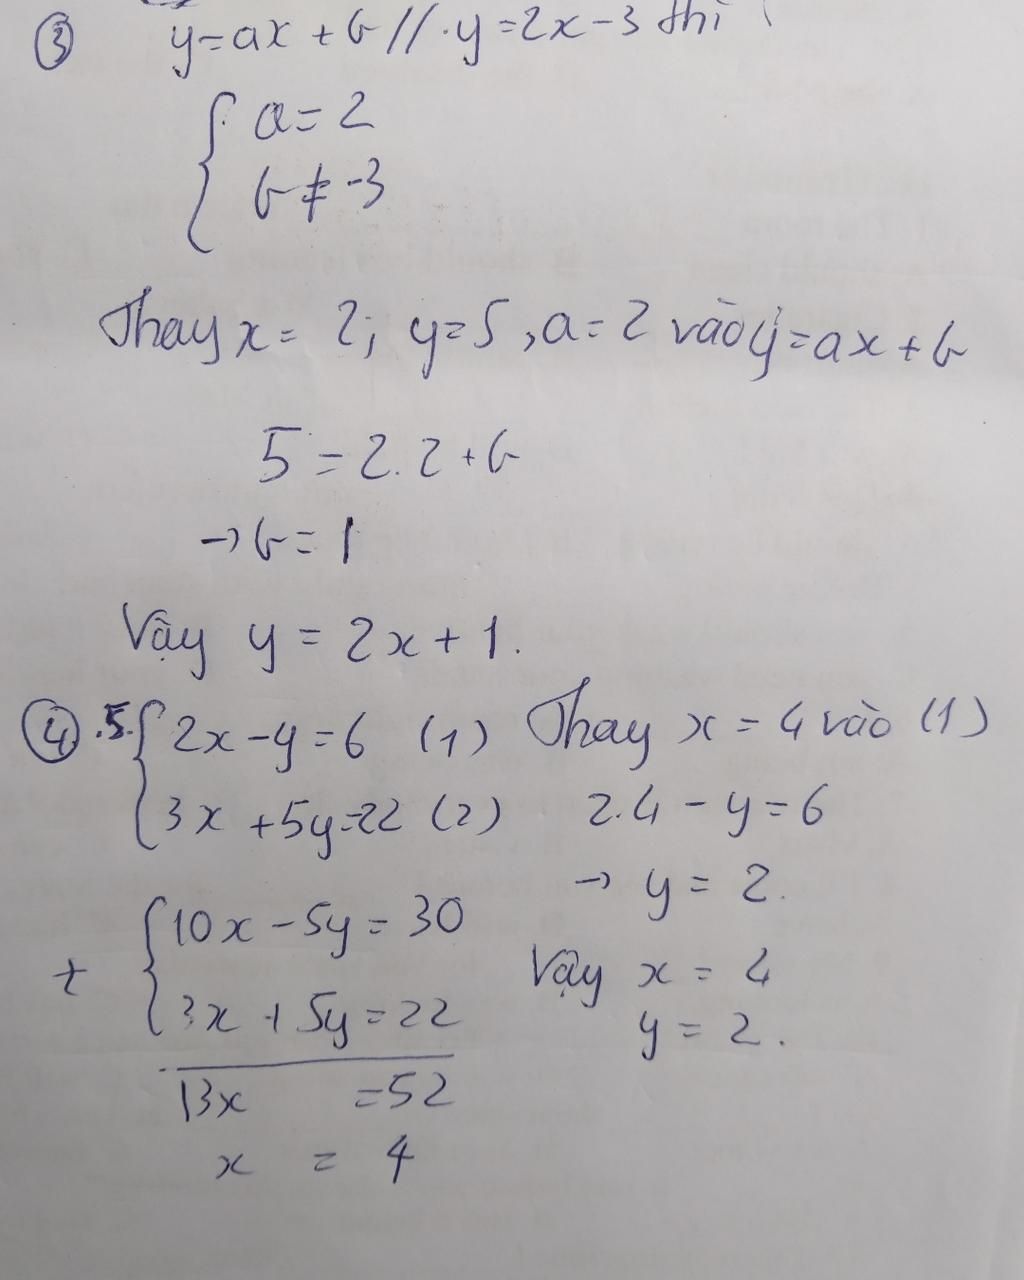 ③ y=ax+b // y=2x-3 thì
{ a=2
b≠-3
Thay x= 2; y=5, a=2 vào y=ax+b
5=2.2+b
→b=1
Vậy y=2x+1.
④ .5. { 2x-y=6 (1)
3x+5y=22 (2)
+ { 10x-5y=30
3x+5y=22
13x =52
x = 4
Thay x=4 vào (1)
2.4-y=6
→ y=2.
Vậy x=4
y=2.